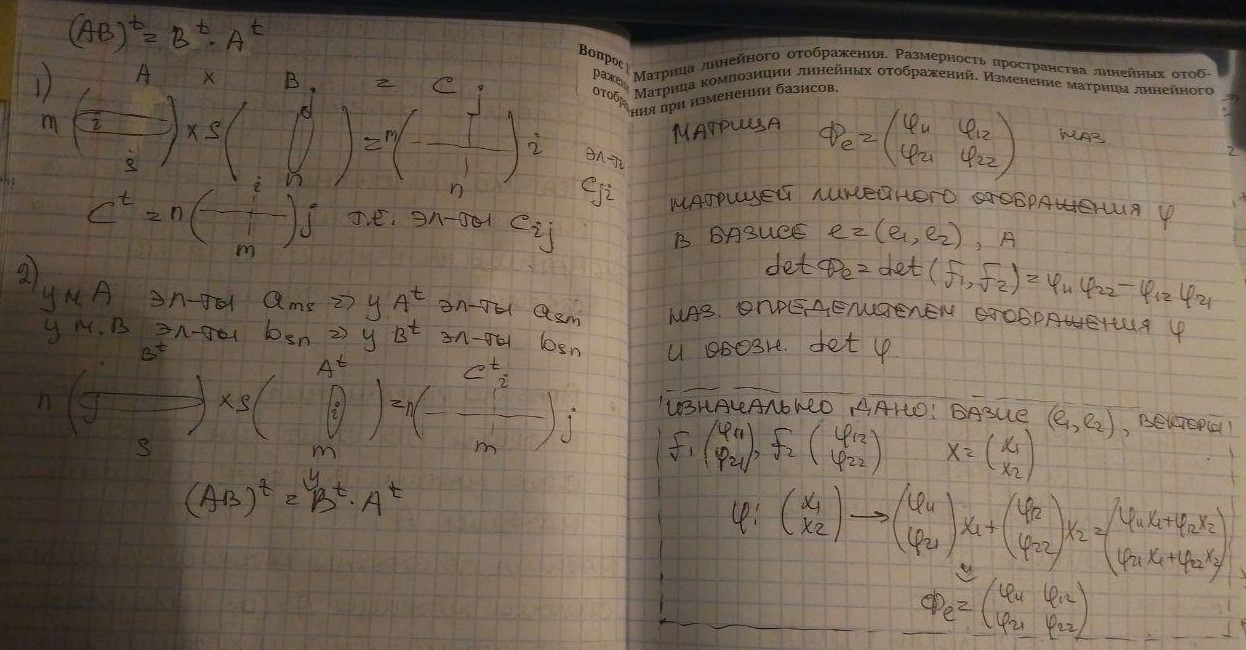 (AB)^t = B^t · A^t
1) A × B = C j
m ( i ) × s ( ) = m ( ) i
s n n
эл-ты
C_ji
i
C^t = n ( ) j т.е. эл-ты C_ij
m
2) у м. A эл-ты a_ms => у A^t эл-ты a_sm
у м. B эл-ты b_sn => у B^t эл-ты b_sn
B^t A^t C^t i
n ( j ) × s ( i ) = n ( ) j
s m m
(AB)^t = B^t · A^t
Вопрос Матрица линейного отображения. Размерность пространства линейных отоб-
ражен Матрица композиции линейных отображений. Изменение матрицы линейного
отображ ния при изменении базисов.
МАТРИЦА Φ_e = (φ_11 φ_12
φ_21 φ_22) НАЗ.
МАТРИЦЕЙ ЛИНЕЙНОГО ОТОБРАЖЕНИЯ φ
В БАЗИСЕ e = (e_1, e_2), А
det Φ_e = det (f_1, f_2) = φ_11 φ_22 − φ_12 φ_21
НАЗ. ОПРЕДЕЛИТЕЛЕМ ОТОБРАЖЕНИЯ φ
И ОБОЗН. det φ
ИЗНАЧАЛЬНО ДАНО: БАЗИС (e_1, e_2), ВЕКТОРЫ
f_1 (φ_11
φ_21), f_2 (φ_12
φ_22) x = (x_1
x_2)
φ: (x_1
x_2) → (φ_11
φ_21) x_1 + (φ_12
φ_22) x_2 = (φ_11 x_1 + φ_12 x_2
φ_21 x_1 + φ_22 x_2)
Φ_e = (φ_11 φ_12
φ_21 φ_22)